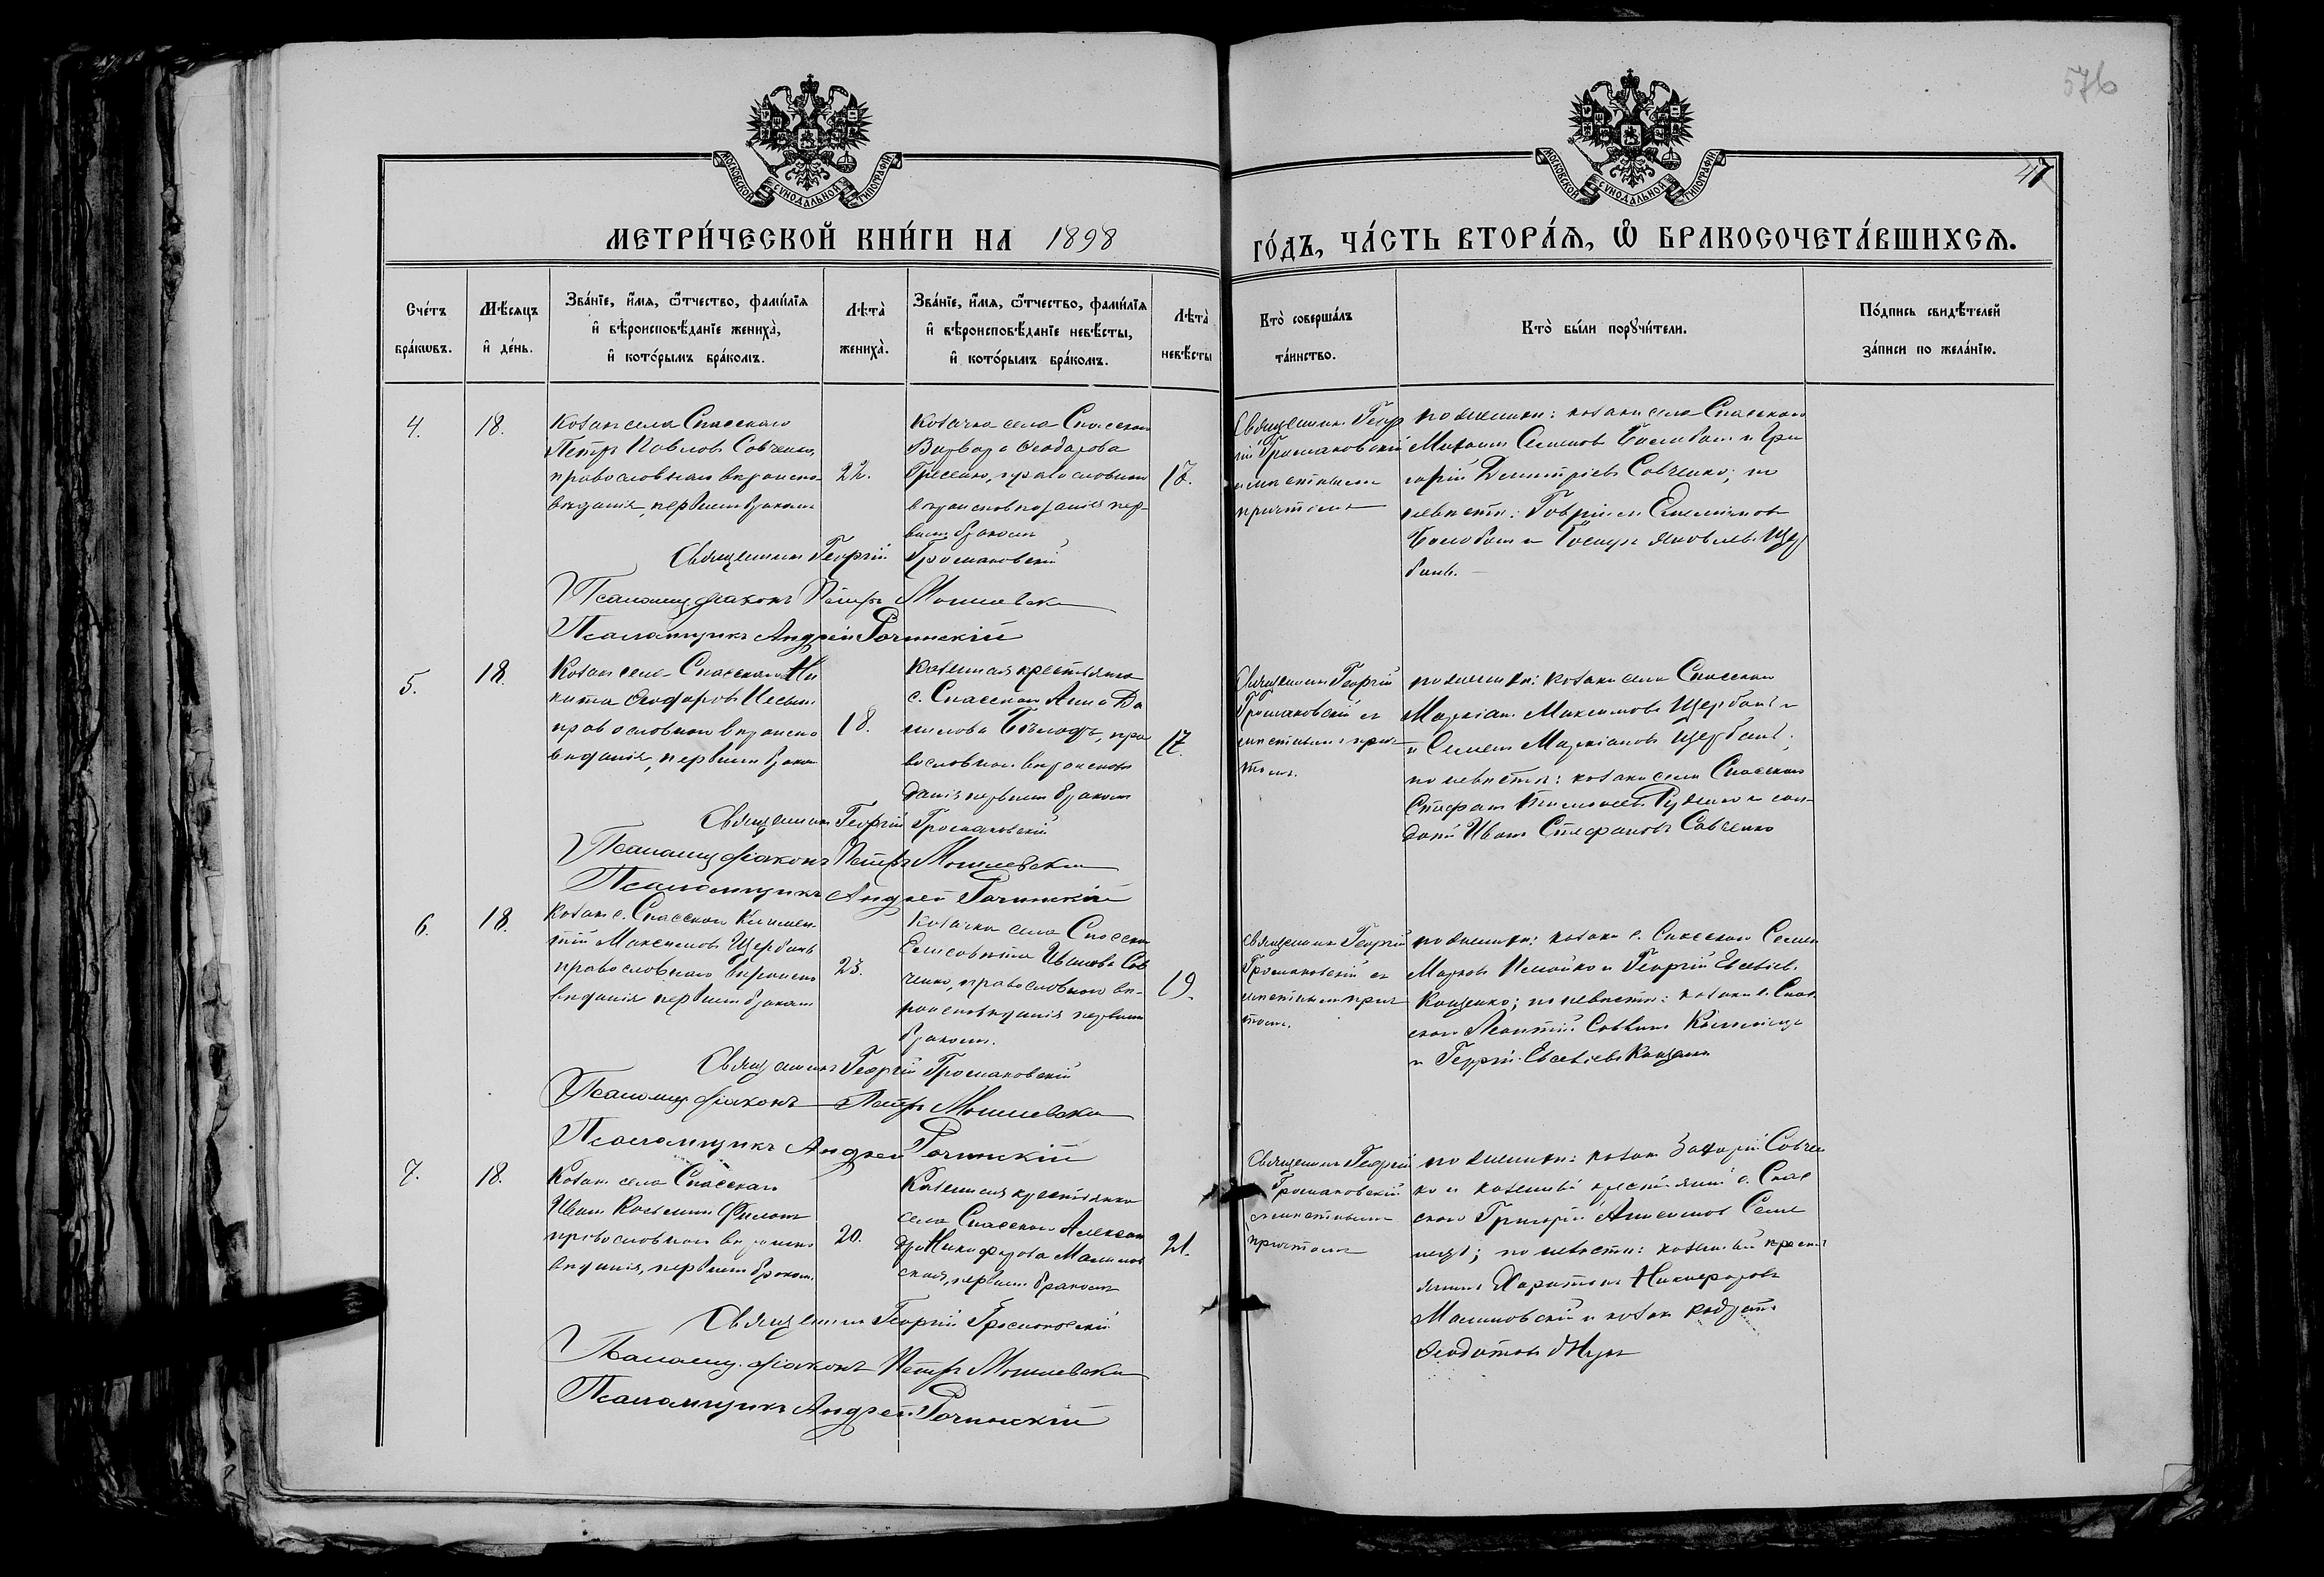 576
47
МОСКОВСКОЙ СѴНОДАЛЬНОЙ ТИПОГРАФІИ
МОСКОВСКОЙ СѴНОДАЛЬНОЙ ТИПОГРАФІИ
МЕТРИ́ЧЕСКОЙ КНИ́ГИ НА 1898
ГО́ДЪ, ЧА́СТЬ ВТОРА́Я, Ѽ БРАКОСОЧЕТА́ВШИХСЯ.
Сче́тъ
бра́кѡвъ.
Мѣ́сяцъ
и҆ де́нь.
Зва́нїе, и҆́мѧ, ѻ҆́тчество, фами́лїѧ
и҆ вѣроисповѣ́данїе жениха̀,
и҆ кото́рымъ бра́комъ.
Лѣта̀
жениха̀.
Зва́нїе, и҆́мѧ, ѻ҆́тчество, фами́лїѧ
и҆ вѣроисповѣ́данїе невѣ́сты,
и҆ кото́рымъ бра́комъ.
Лѣта̀
невѣ́сты
Кто̀ соверша́лъ
та́инство.
Кто̀ бы́ли порꙋчи́тели.
По́дпись свидѣ́телей
за́писи по жела́нїю.
4.
18.
Козакъ села Спасскаго
Петръ Павловъ Савченко,
православнаго вѣроиспо-
вѣданія, первымъ бракомъ
22.
Козачка села Спасскаго
Варвара Ѳеодорова
православнаго
вѣроисповѣданія пер-
вымъ бракомъ
17.
Священникъ Георг
ій Громаковскій
съ мѣстнымъ
причтомъ
по женихѣ: козаки села Спасскаго
Михаилъ Семеновъ и Гри
горій Димитріевъ Савченко; по
невѣстѣ: Гавріилъ Емельяновъ
и Іосифъ Яковлевъ Щер
бакъ.
Священникъ Георгій Громаковскій
Псаломщ. діаконъ Петръ
Псаломщикъ Андрей Рачинскій
5.
18.
Козакъ села Спасскаго Ни
кита Ѳеодоровъ
православнаго вѣроиспо
вѣданія, первымъ бракомъ
18.
Казенная крестьянка
с. Спасскаго Анна Да
нилова пра
вославнаго вѣроисповѣ
данія первымъ бракомъ
17.
Священникъ Георгій
Громаковскій съ
мѣстнымъ прич
томъ.
по женихѣ: козаки села Спасскаго
Маркіанъ Максимовъ Щербакъ и
и Семенъ Маркіановъ Щербакъ;
по невѣстѣ: козаки села Спасскаго
Стефанъ Руденко и сол
датъ Иванъ Стефановъ Савченко
Священникъ Георгій Громаковскій
Псаломщ. діаконъ Петръ
Псаломщикъ Андрей Рачинскій
6.
18.
Козакъ с. Спасскаго Климен
тій Максимовъ Щербакъ
православнаго вѣроиспо
вѣданія первымъ бракомъ
23.
Козачка села Спасскаго
Елисавета Иванова Сав
ченко, православнаго вѣ-
роисповѣданія первымъ
бракомъ.
19.
Священникъ Георгій
Громаковскій съ
мѣстнымъ прич
томъ.
по женихѣ: козаки с. Спасскаго Семенъ
Марковъ и Георгій Евсевіевъ
Кащенко; по невѣстѣ: козаки с. Спас
скаго Леонтій Саввинъ
и Георгій Евсевіевъ Кащенко
Священникъ Георгій Громаковскій
Псаломщ. діаконъ Петръ
Псаломщикъ Андрей Рачинскій
7.
18.
Козакъ села Спасскаго
Иванъ Косьминъ Филонъ
православнаго вѣроиспо
вѣданія, первымъ бракомъ.
20.
Казенная крестьянка
села Спасскаго Алексан
дра Никифорова Малинов
ская, первымъ бракомъ
21.
Священникъ Георгій
Громаковскій
съ мѣстнымъ
причтомъ
по женихѣ: козакъ Захарій Савчен
ко и казенный крестьянинъ с. Спас
скаго Григорій
по невѣстѣ: казенный кресть
янинъ Харитонъ Никифоровъ
Малиновскій и козакъ Кодратъ
Ѳеодотовъ
Священникъ Георгій Громаковскій
Псаломщ. діаконъ Петръ
Псаломщикъ Андрей Рачинскій